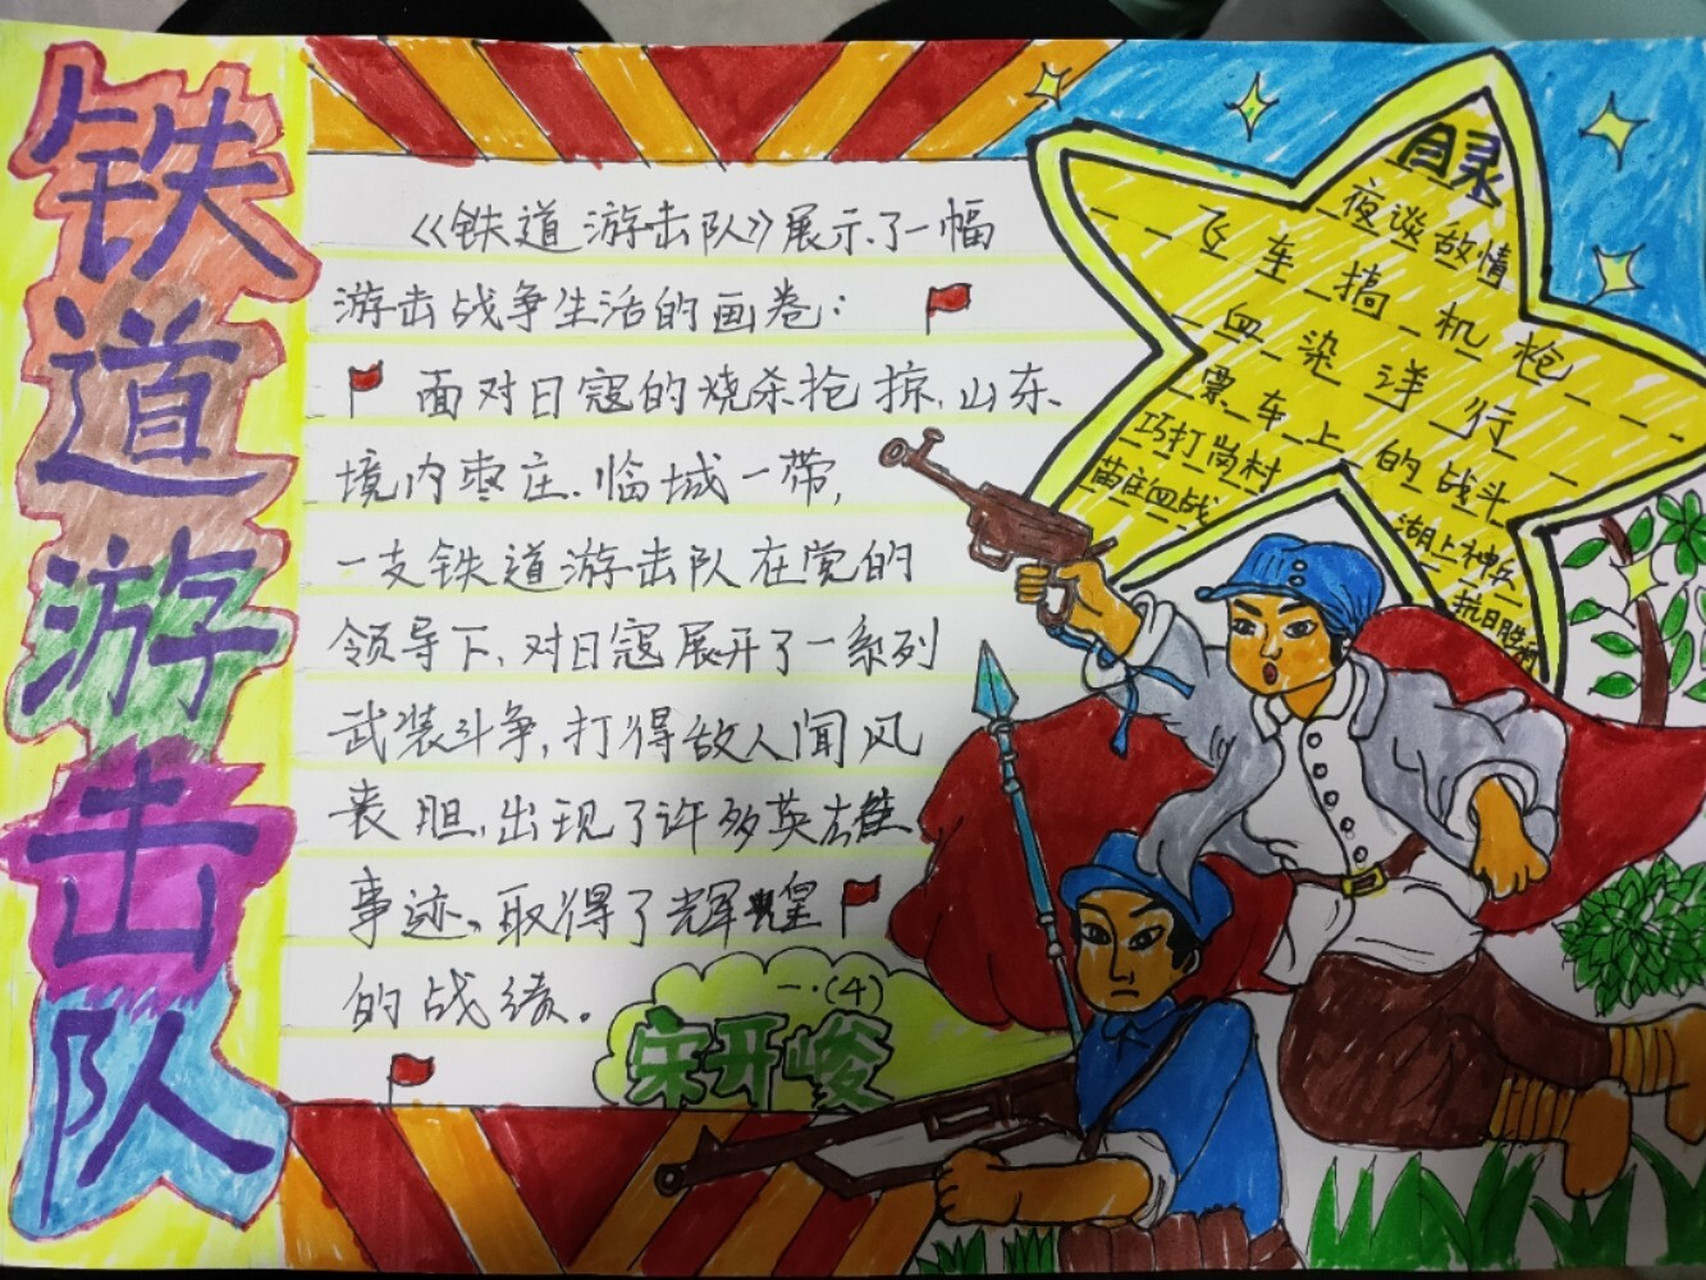 铁道游击队
《铁道游击队》展示了一幅
游击战争生活的画卷：
面对日寇的烧杀抢掠，山东
境内枣庄、临城一带，
一支铁道游击队在党的
领导下，对日寇展开了一系列
武装斗争，打得敌人闻风
丧胆，出现了许多英雄
事迹。取得了辉煌
的战绩。
一·(4)
宋开峻
目录
夜谈敌情
飞车搞机枪
血染洋行
票车上的战斗
巧打岗村
苗庄血战
湖上神兵
抗日胜利